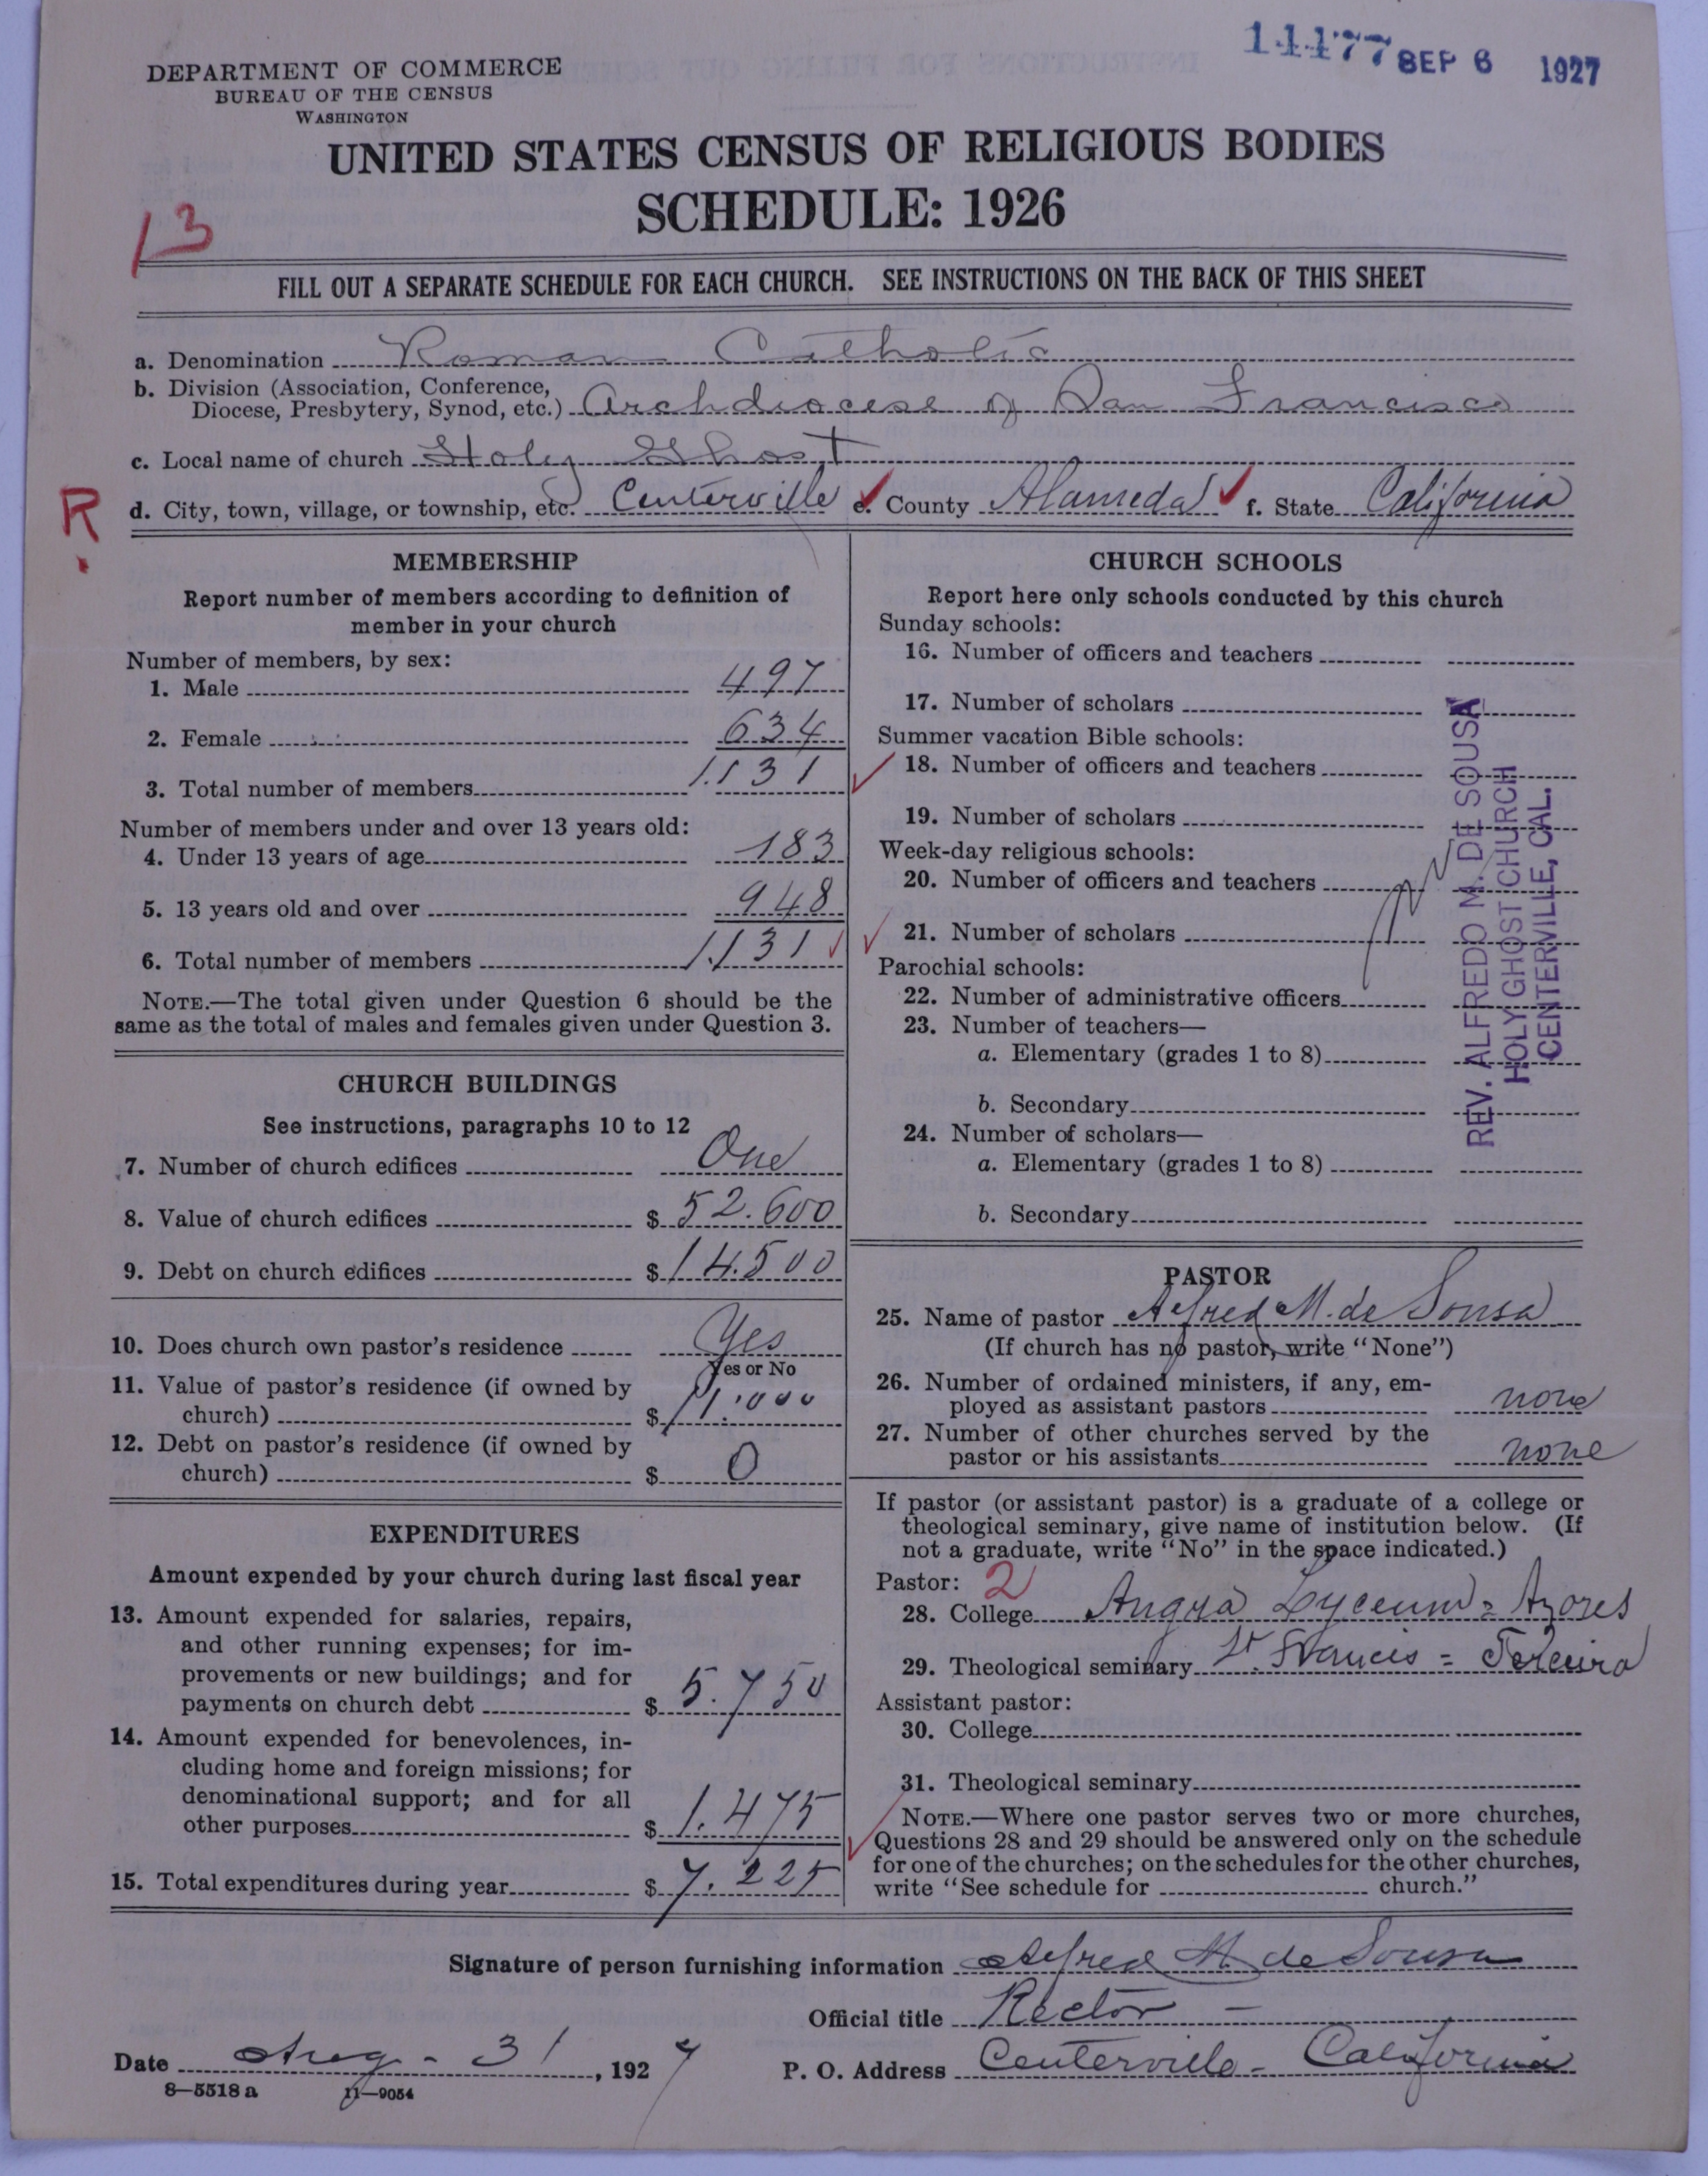 11177 SEP 6 1927
DEPARTMENT OF COMMERCE
BUREAU OF THE CENSUS
WASHINGTON
UNITED STATES CENSUS OF RELIGIOUS BODIES
SCHEDULE: 1926
13
FILL OUT A SEPARATE SCHEDULE FOR EACH CHURCH. SEE INSTRUCTIONS ON THE BACK OF THIS SHEET
a. Denomination Roman Catholic
b. Division (Association, Conference,
Diocese, Presbytery, Synod, etc.) Archdiocese of San Francisco
c. Local name of church Holy Ghost
R
d. City, town, village, or township, etc. Centerville e. County Alameda f. State California
MEMBERSHIP
Report number of members according to definition of
member in your church
Number of members, by sex:
1. Male 497
2. Female 634
3. Total number of members 1131
Number of members under and over 13 years old:
4. Under 13 years of age 183
5. 13 years old and over 948
6. Total number of members 1.131
NOTE.—The total given under Question 6 should be the
same as the total of males and females given under Question 3.
CHURCH BUILDINGS
See instructions, paragraphs 10 to 12
7. Number of church edifices One
8. Value of church edifices $ 52.600
9. Debt on church edifices $ 14.500
10. Does church own pastor's residence Yes
Yes or No
11. Value of pastor's residence (if owned by
church) $ 11.000
12. Debt on pastor's residence (if owned by
church) $ 0
EXPENDITURES
Amount expended by your church during last fiscal year
13. Amount expended for salaries, repairs,
and other running expenses; for im-
provements or new buildings; and for
payments on church debt $ 5.750
14. Amount expended for benevolences, in-
cluding home and foreign missions; for
denominational support; and for all
other purposes $ 1.475
15. Total expenditures during year $ 7.225
CHURCH SCHOOLS
Report here only schools conducted by this church
Sunday schools:
16. Number of officers and teachers
17. Number of scholars
Summer vacation Bible schools:
18. Number of officers and teachers
19. Number of scholars
Week-day religious schools:
20. Number of officers and teachers
21. Number of scholars
Parochial schools:
22. Number of administrative officers
23. Number of teachers—
a. Elementary (grades 1 to 8)
b. Secondary
24. Number of scholars—
a. Elementary (grades 1 to 8)
b. Secondary
REV. ALFREDO M. DE SOUSA
HOLY GHOST CHURCH
CENTERVILLE, CAL.
PASTOR
25. Name of pastor Alfred M. de Sousa
(If church has no pastor, write "None")
26. Number of ordained ministers, if any, em-
ployed as assistant pastors none
27. Number of other churches served by the
pastor or his assistants none
If pastor (or assistant pastor) is a graduate of a college or
theological seminary, give name of institution below. (If
not a graduate, write "No" in the space indicated.)
Pastor: 2
28. College Angra Lyceum = Azores
29. Theological seminary St. Francis = Terceira
Assistant pastor:
30. College
31. Theological seminary
NOTE.—Where one pastor serves two or more churches,
Questions 28 and 29 should be answered only on the schedule
for one of the churches; on the schedules for the other churches,
write "See schedule for church."
Signature of person furnishing information Alfred M. de Sousa
Official title Rector -
Date Aug - 31, 1927 P. O. Address Centerville - California
8-5518 a 11-9054